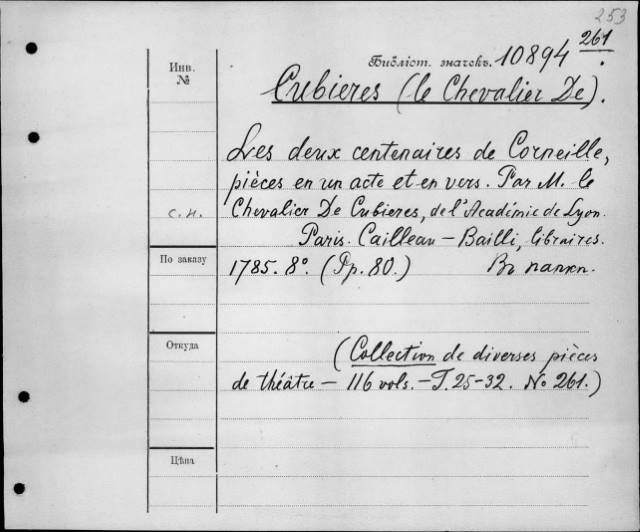 253
Библіот. значекъ. 10894 261.
Инв.
№
Cubieres (le Chevalier De).
Les deux centenaires de Corneille,
pièces en un acte et en vers. Par M. le
с. н.
Chevalier De Cubieres, de l'Académie de Lyon.
Paris. Cailleau – Bailli, libraires.
По заказу
1785. 8°. (Pp. 80.) Въ папкѣ.
Откуда
(Collection de diverses pièces
de théâtre – 116 vols. – T. 25-32. № 261.)
Цѣна